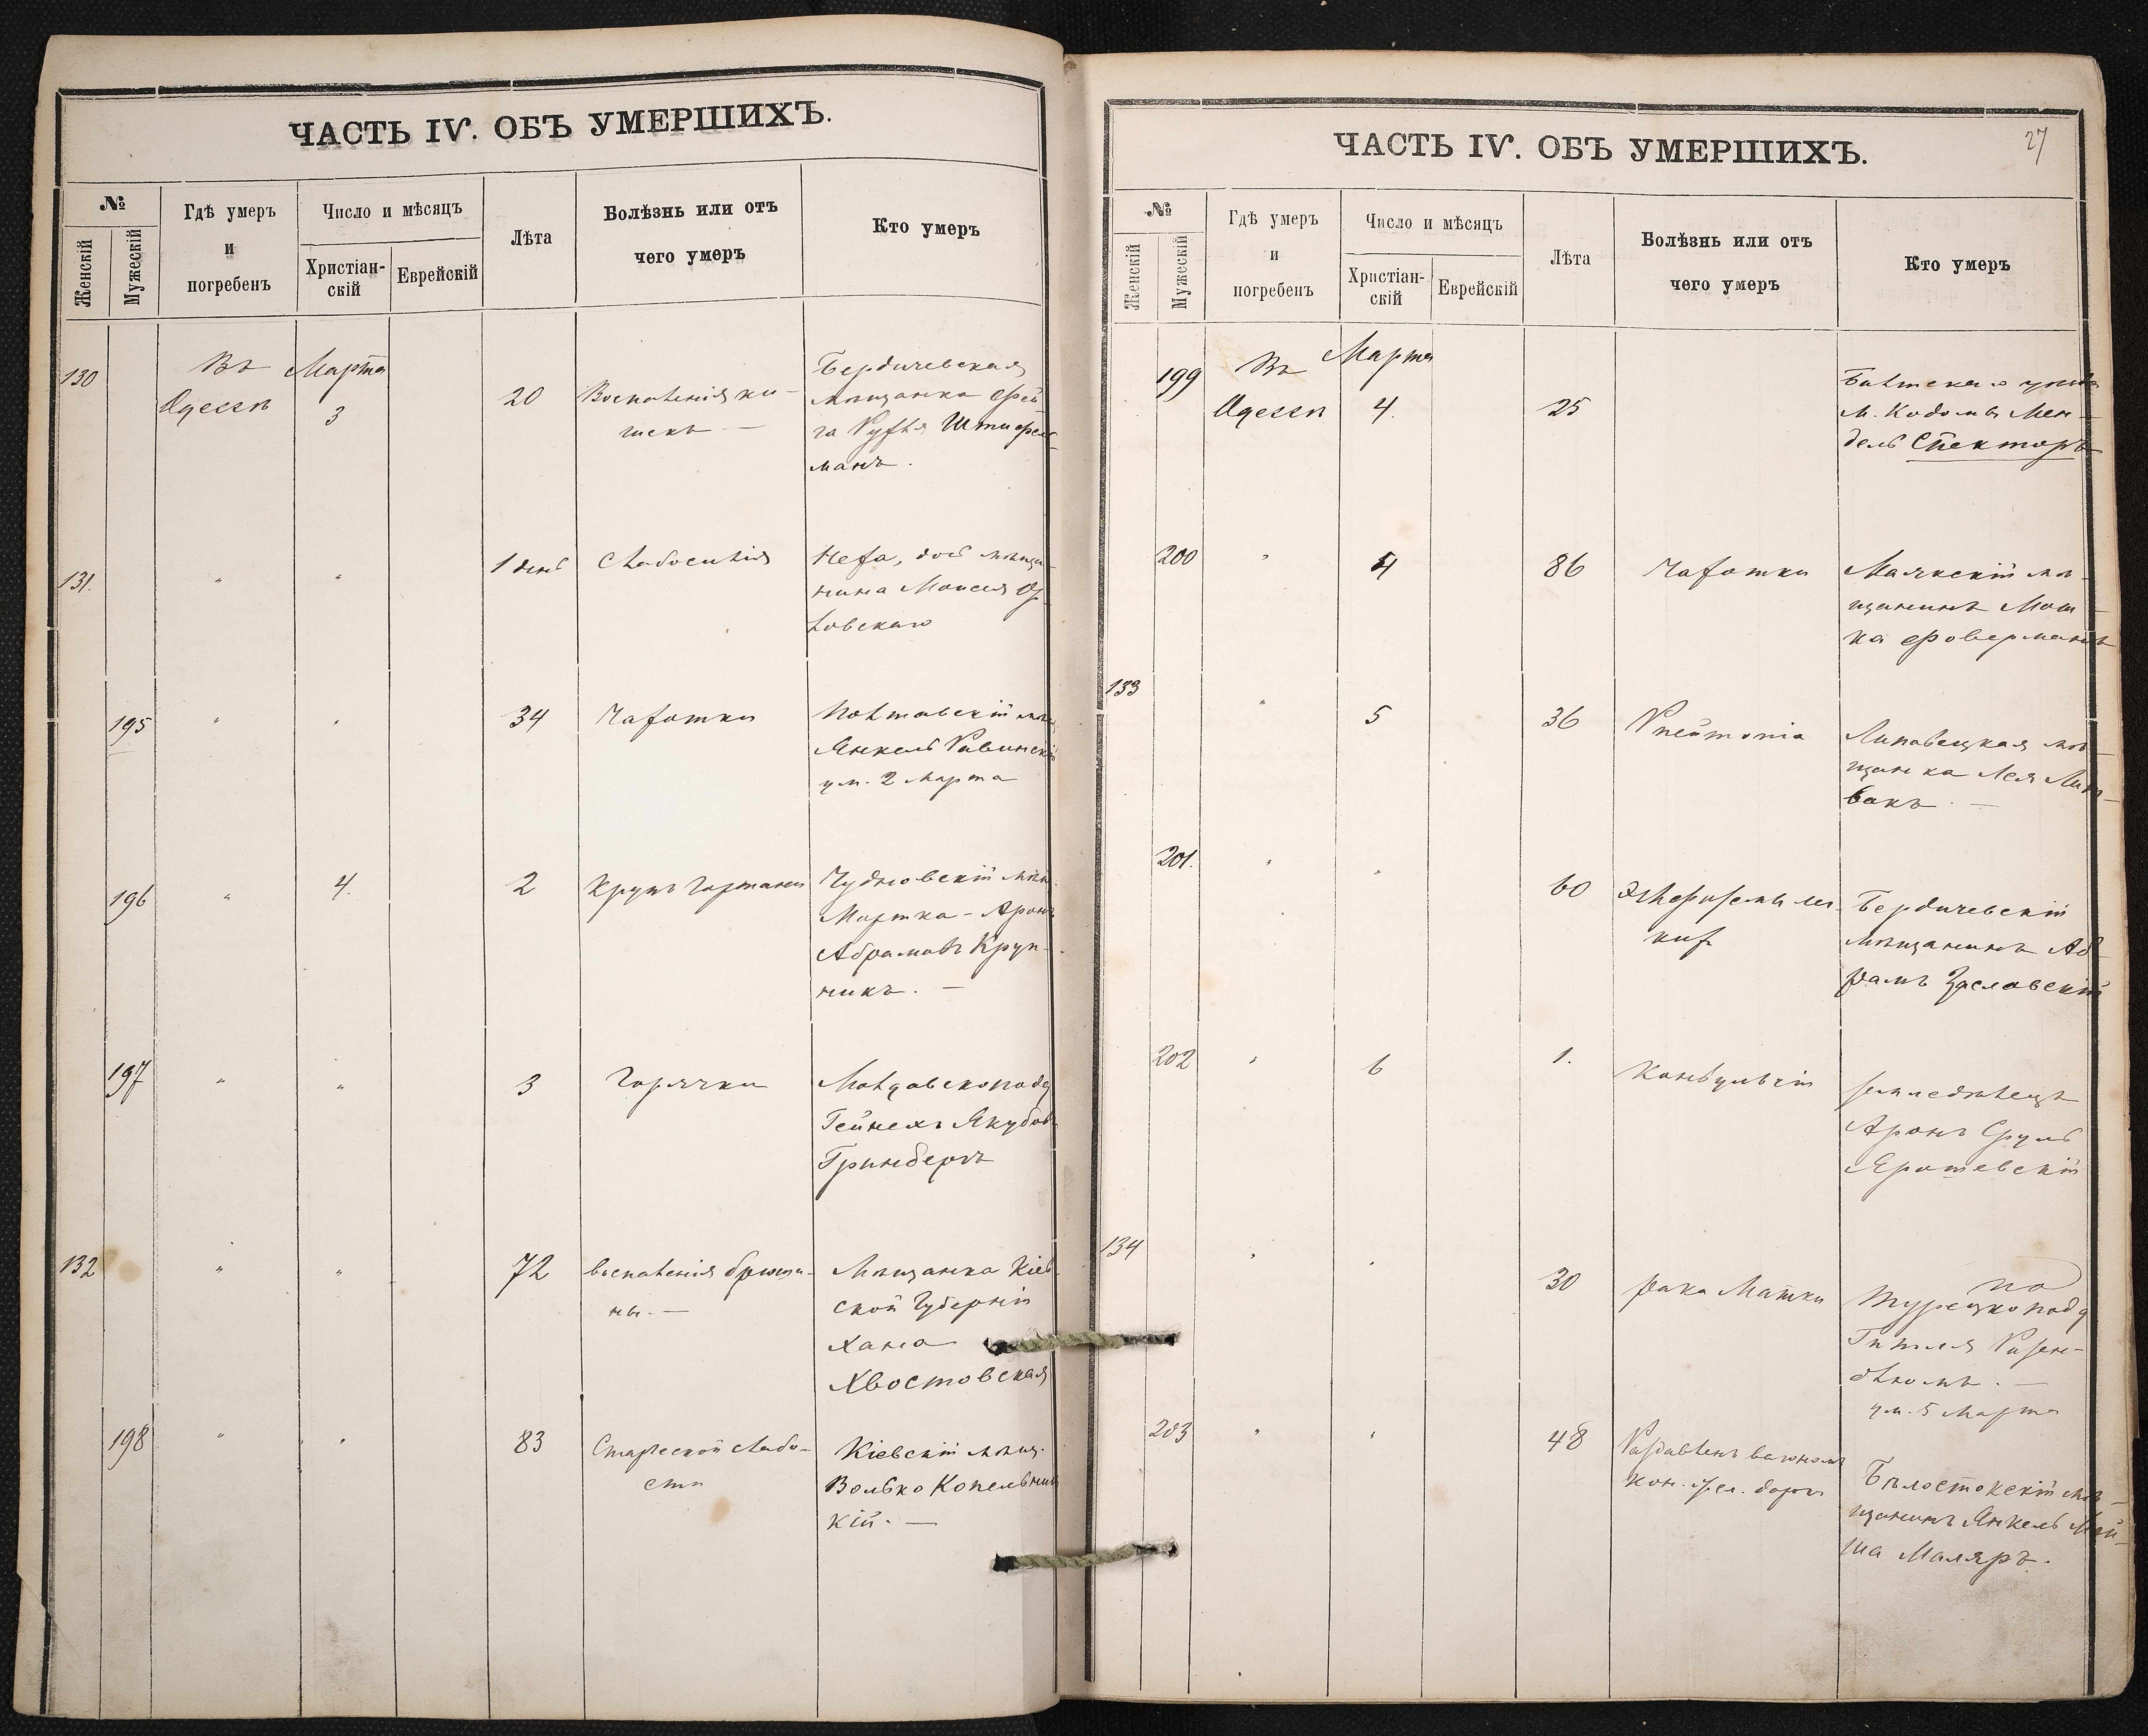 ЧАСТЬ IV. ОБЪ УМЕРШИХЪ.
№
Женскій
Мужескій
Гдѣ умеръ
и
погребенъ
Число и мѣсяцъ
Христіан-
скій
Еврейскій
Лѣта
Болѣзнь или отъ
чего умеръ
Кто умеръ
130
Въ
Одессѣ
Марта
3
20
Воспаленія ки-
шекъ —
Бердичевская
мѣщанка Фрей-
га Рухля
манъ.
131.
"
"
1 день
Слабосилія
мѣща-
нина Моисея Ор-
ловскаго
195
"
"
34
Чахотки
Полтавскій мѣщ.
Янкель
ум. 2 Марта
196
"
4.
2
Крупъ Гортани
Чудновскій мѣщ.
Мортка-Аронъ
Абрамовъ Круп-
никъ. —
197
"
"
3
Горячки
Молдавскоподд
Гейнехъ Якубов
Гринбергъ
132
"
"
72
воспаленія брюши-
ны. —
Мѣщанка Кіев-
ской Губерніи
Хана
Хвостовская
198
"
"
83
Старческой слабо-
сти
Кіевскій мѣщ.
Волько Копельниц
кій. —
ЧАСТЬ IV. ОБЪ УМЕРШИХЪ.
27
№
Женскій
Мужескій
Гдѣ умеръ
и
погребенъ
Число и мѣсяцъ
Христіан-
скій
Еврейскій
Лѣта
Болѣзнь или отъ
чего умеръ
Кто умеръ
199
Въ
Одессѣ
Марта
4.
25
Балтскаго уѣзда
м. Кодымы Мен-
дель Спекторъ
200
"
4
86
Чахотки
Маякскій мѣ-
щанинъ Мош-
ка Фоверманъ
133
"
5
36
Pneumonia
Липовецкая мѣ-
щанка Лея Лит-
вакъ. —
201.
"
"
60
Эмфиземы лег-
кихъ
Бердичевскій
мѣщанинъ Аб-
рамъ Заславскій
202
"
6
1.
Конвульсіи
земледѣлецъ
Аронъ Сруль
Ярошевскій
134
"
"
30
рака Матки
Турецкоподд
Розен-
блюмъ. —
ум. 5 Марта
203
"
"
48
Раздавленъ вагономъ
кон. жел. дороги
Бѣлостокскій мѣ-
щанинъ Янкель Мой-
ша Маляръ.